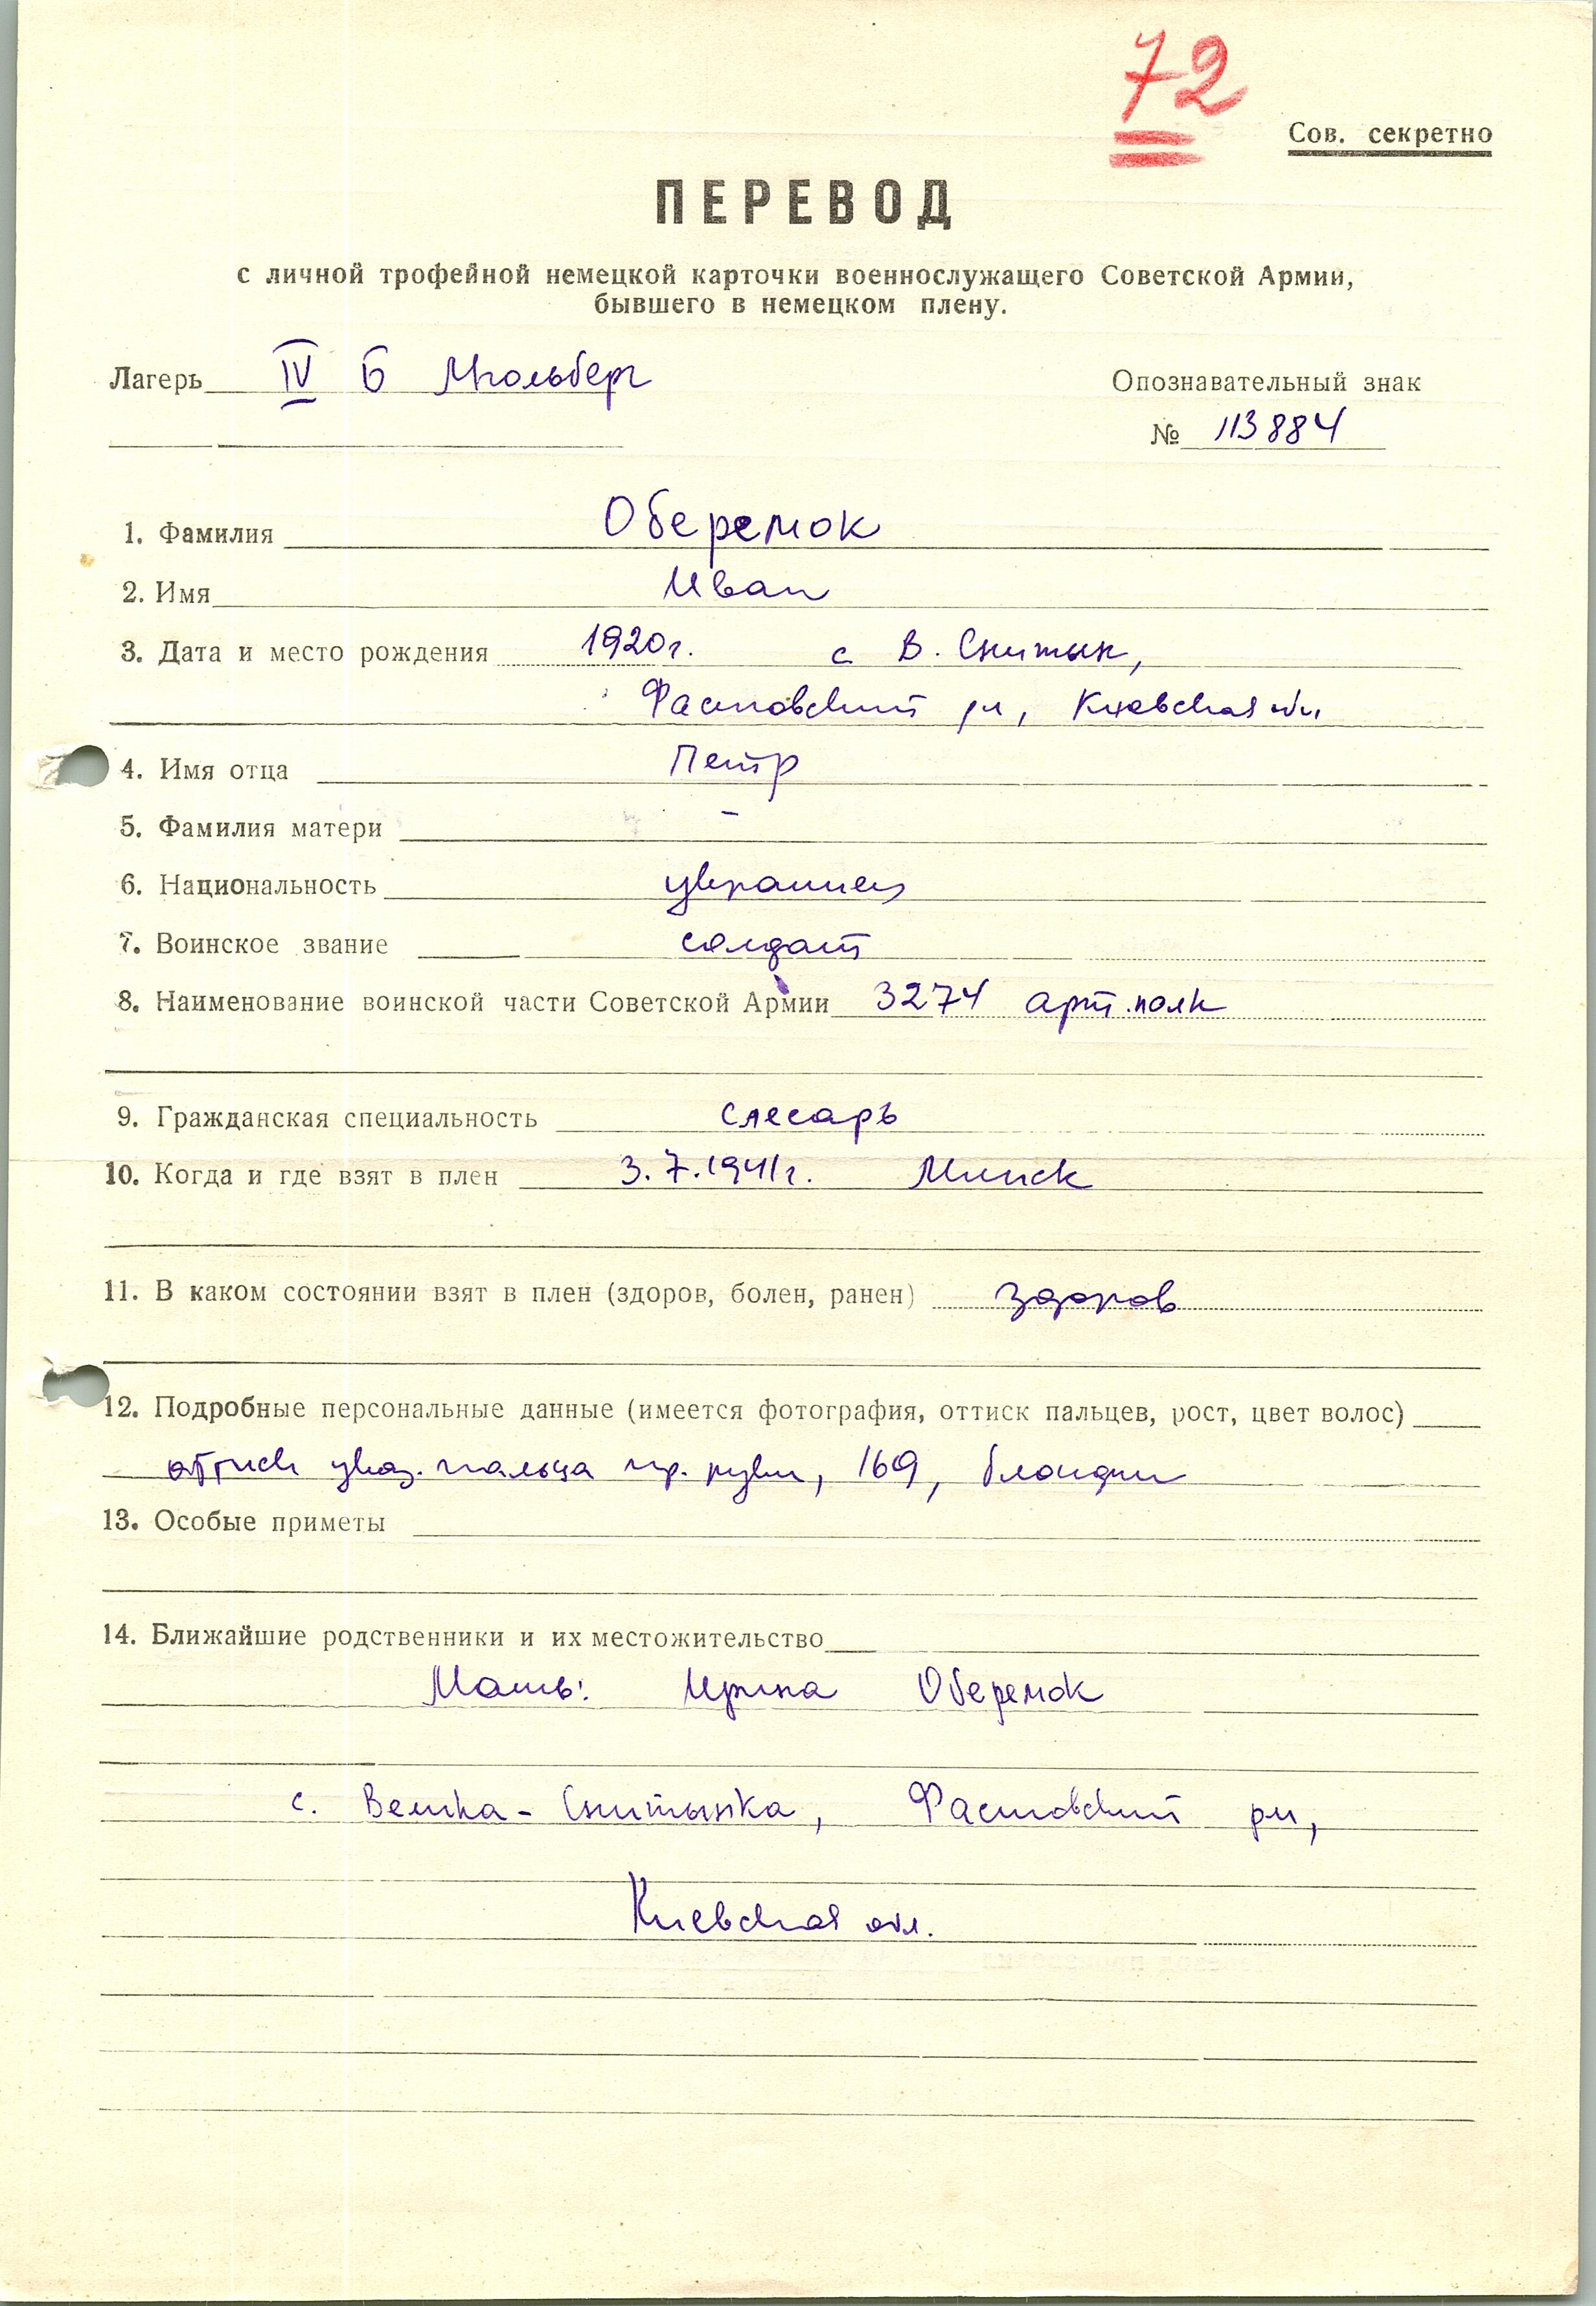 72
Сов. секретно
ПЕРЕВОД
с личной трофейной немецкой карточки военнослужащего Советской Армии,
бывшего в немецком плену.
Лагерь IV Б Мюльберг
Опознавательный знак
№ 113884
1. Фамилия Оберемок
2. Имя Иван
3. Дата и место рождения 1920г. с В. Снитын,
Фастовский рн, Киевская обл
4. Имя отца Петр
5. Фамилия матери -
6. Национальность украинец
7. Воинское звание солдат
8. Наименование воинской части Советской Армии 3274 арт.полк
9. Гражданская специальность слесарь
10. Когда и где взят в плен 3.7.1941г. Минск
11. В каком состоянии взят в плен (здоров, болен, ранен) здоров
12. Подробные персональные данные (имеется фотография, оттиск пальцев, рост, цвет волос)
оттиск указ. пальца пр. руки, 169, блондин
13. Особые приметы
14. Ближайшие родственники и их местожительство
Мать: Ирина Оберемок
с. Велика-Снитынка, Фастовский рн,
Киевская обл.